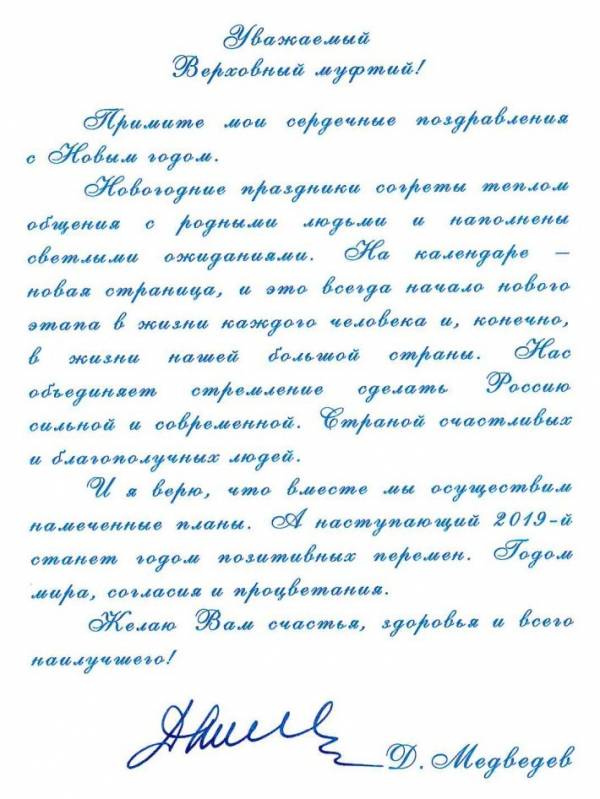 Уважаемый
Верховный муфтий!
Примите мои сердечные поздравления
с Новым годом.
Новогодние праздники согреты теплом
общения с родными людьми и наполнены
светлыми ожиданиями. На календаре –
новая страница, и это всегда начало нового
этапа в жизни каждого человека и, конечно,
в жизни нашей большой страны. Нас
объединяет стремление сделать Россию
сильной и современной. Страной счастливых
и благополучных людей.
И я верю, что вместе мы осуществим
намеченные планы. А наступающий 2019-й
станет годом позитивных перемен. Годом
мира, согласия и процветания.
Желаю Вам счастья, здоровья и всего
наилучшего!
Д. Медведев